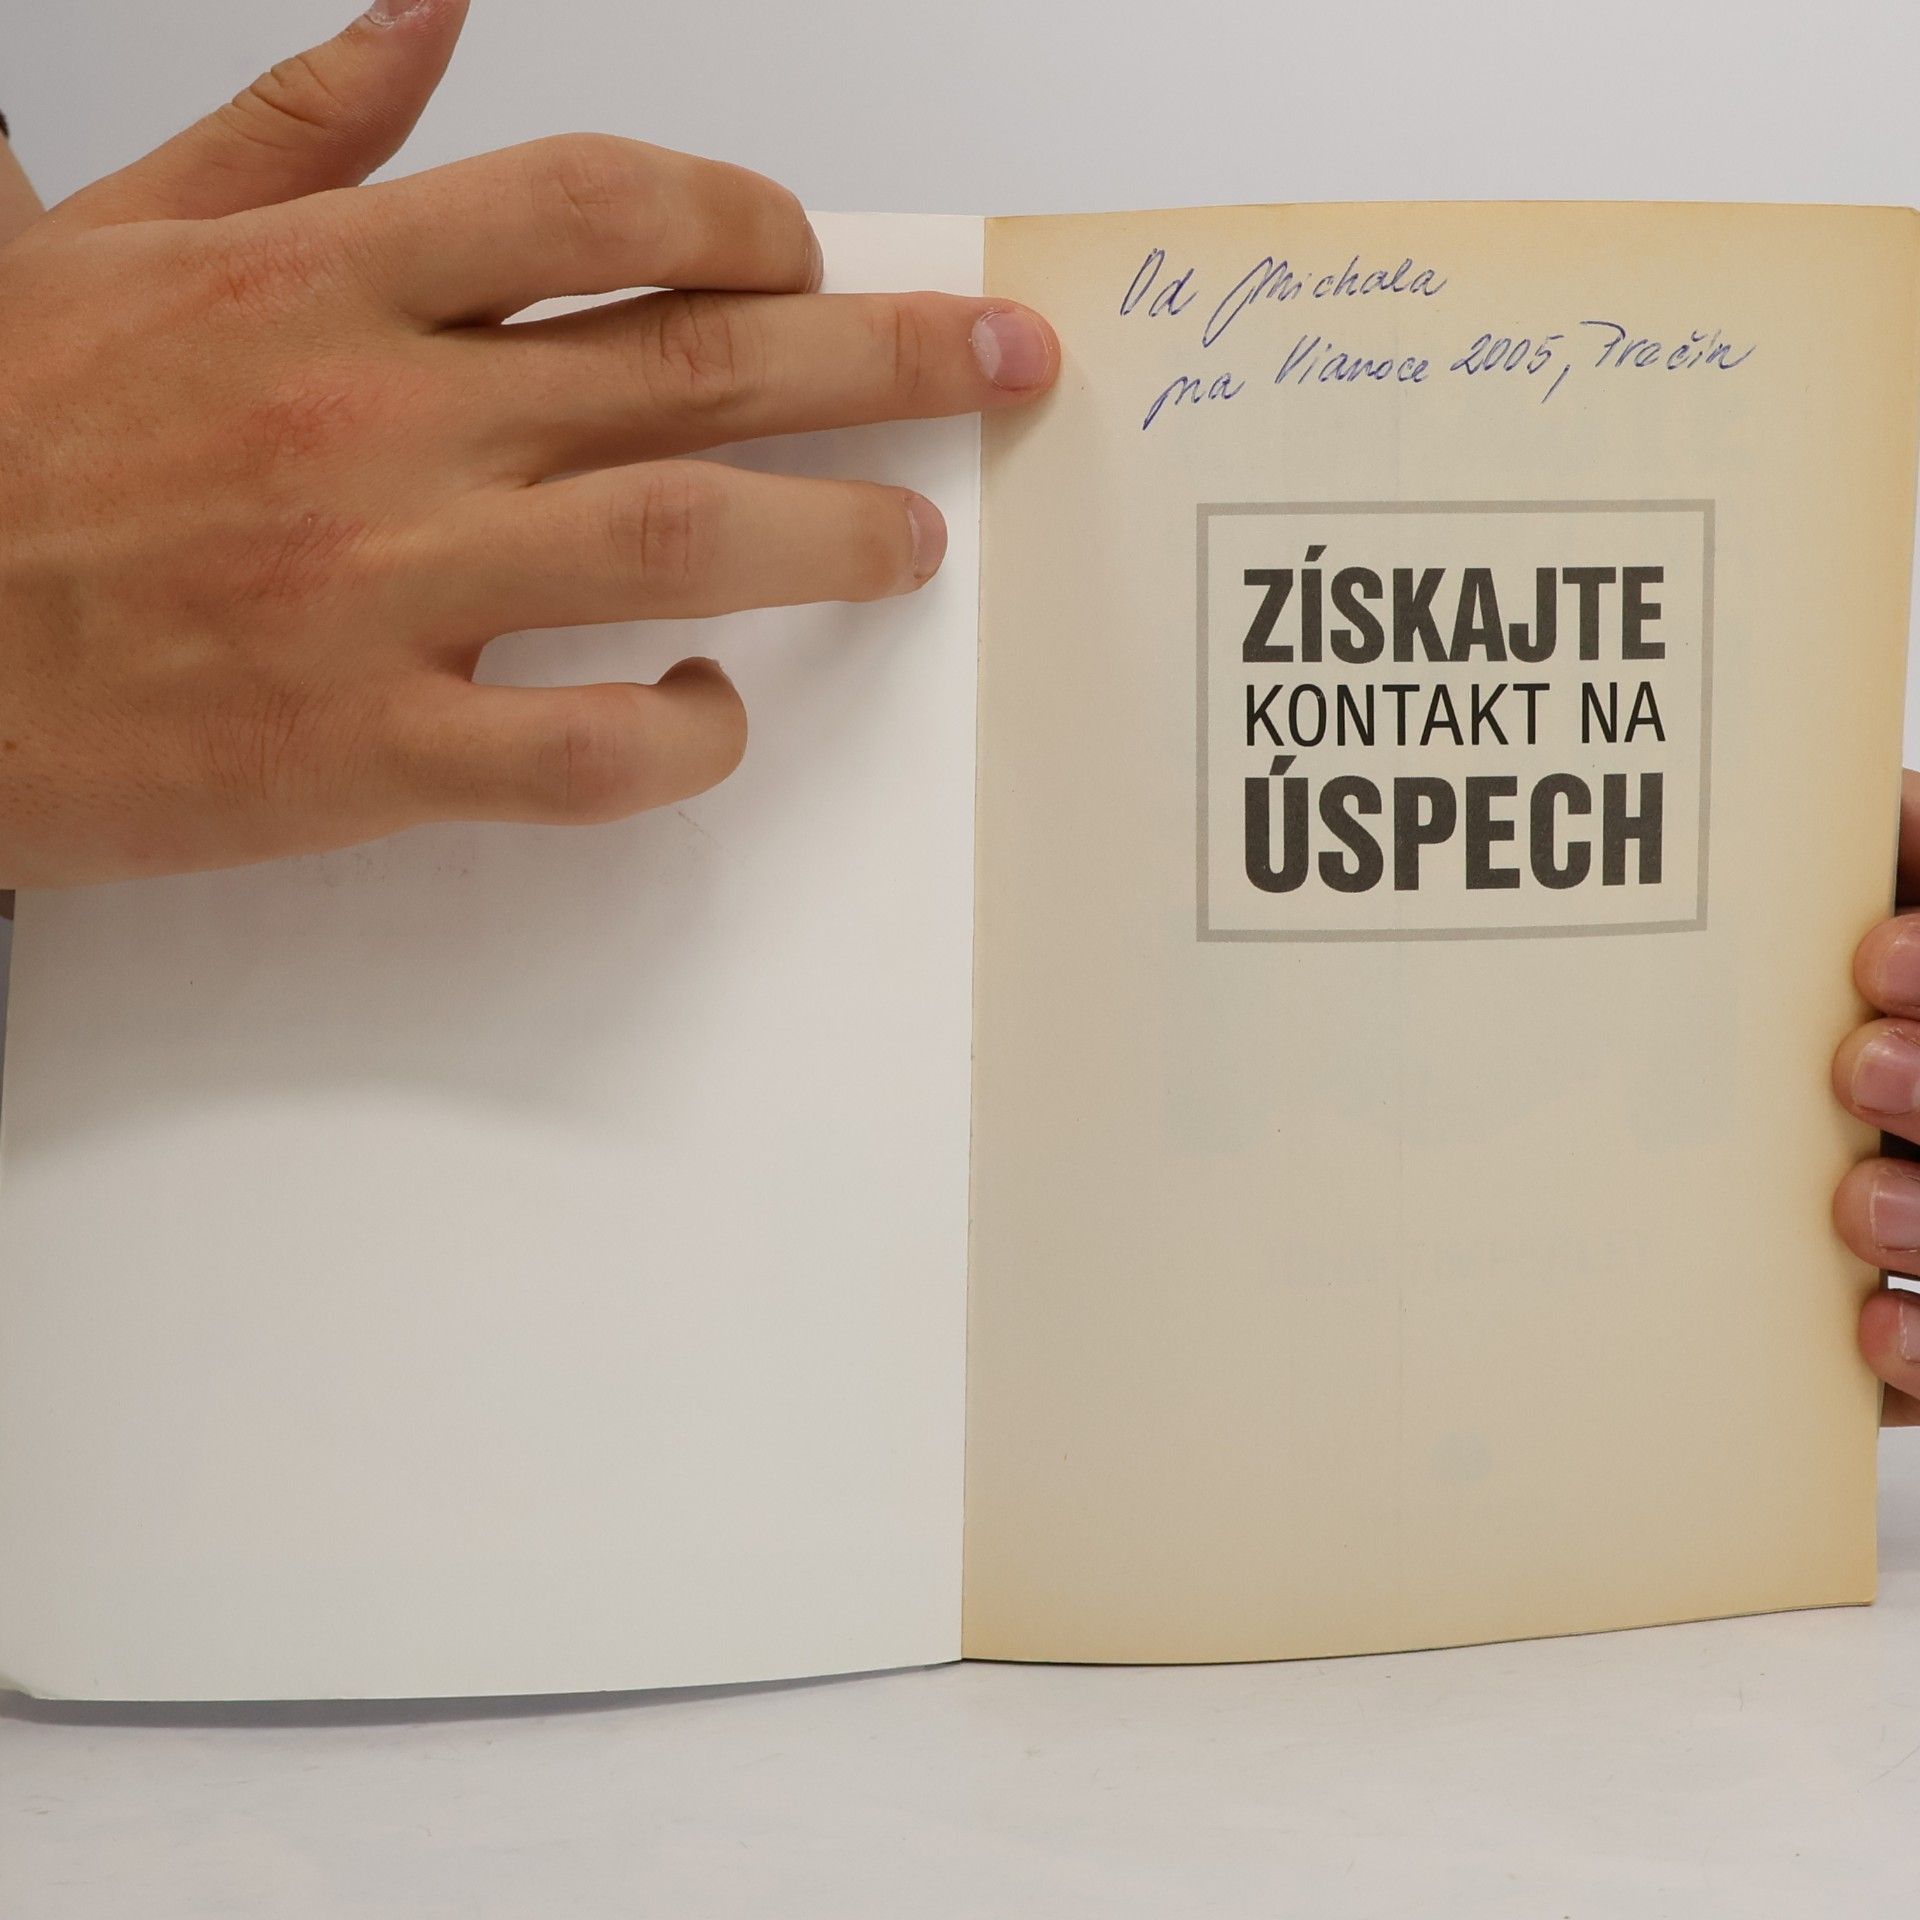 Od Michala
na Vianoce 2005, Pračín
ZÍSKAJTE
KONTAKT NA
ÚSPECH